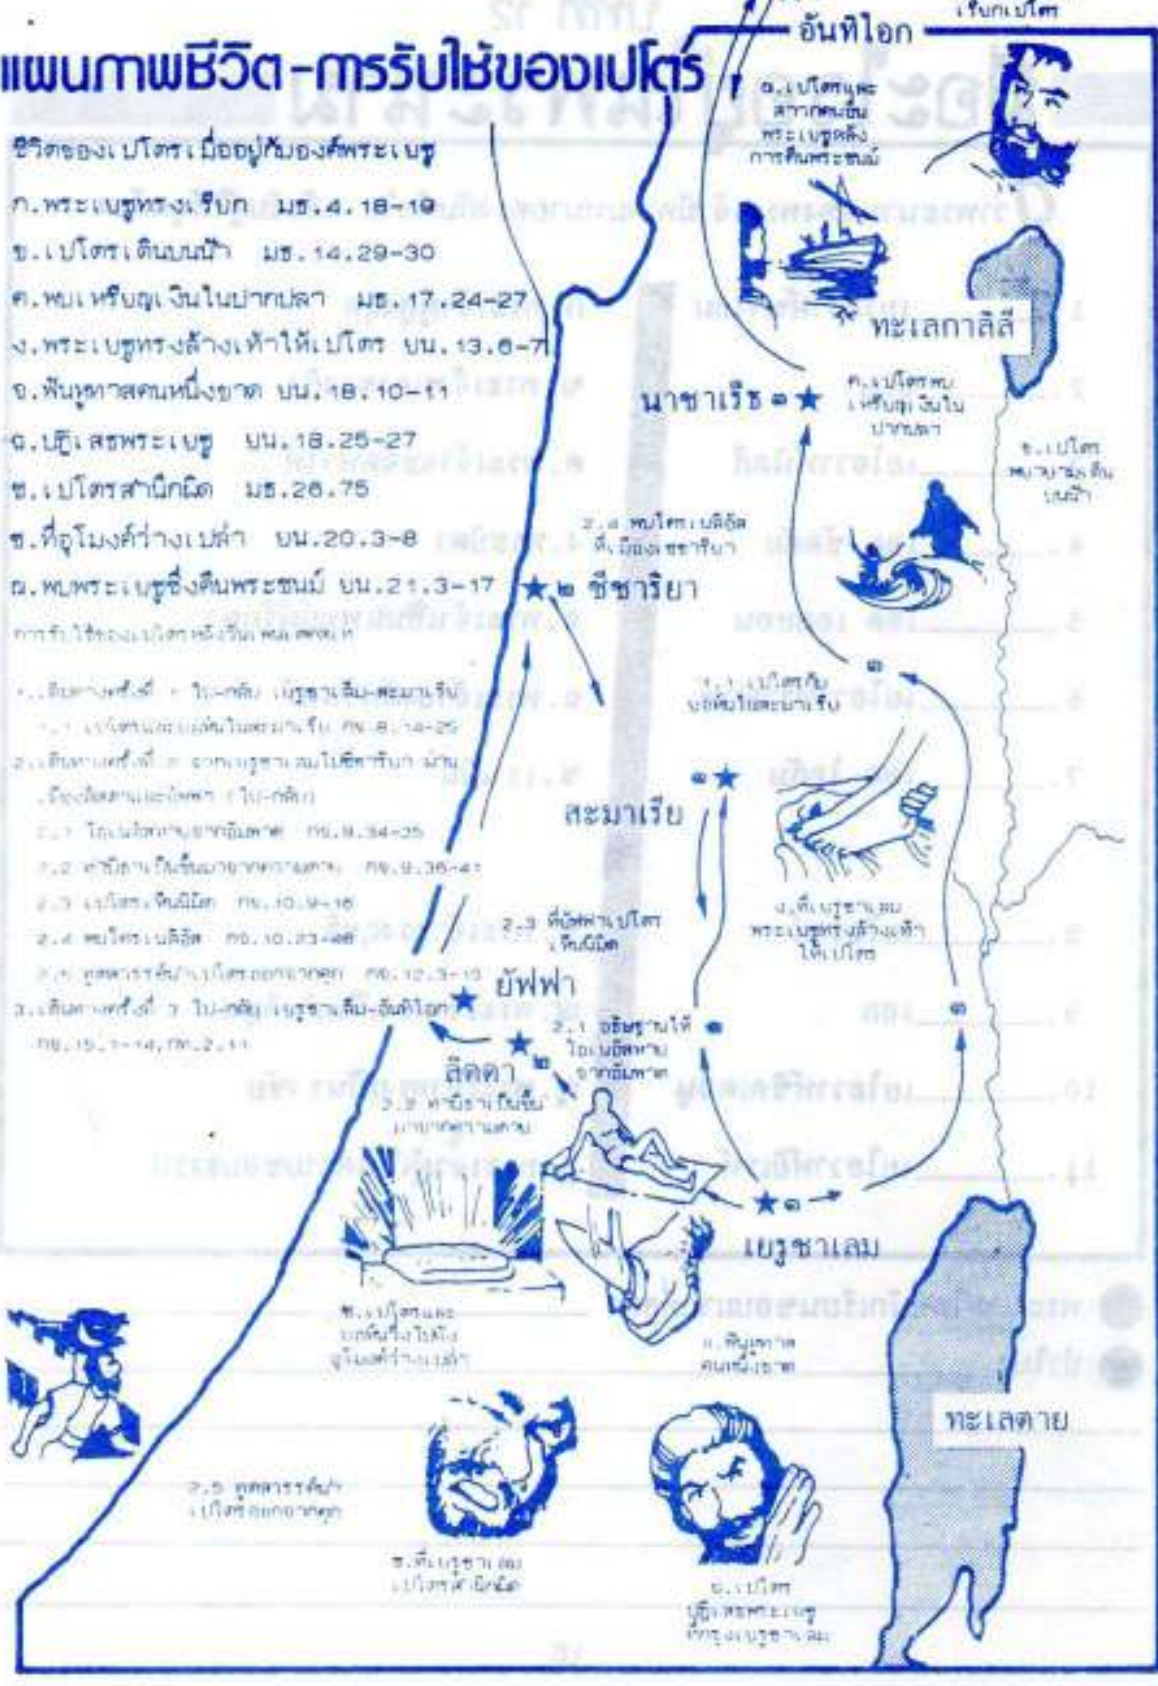 เรียกเปโตร
อันทิโอก
แผนภาพชีวิต-การรับใช้ของเปโตร
ชีวิตของเปโตรเมื่ออยู่กับองค์พระเยซู
ก.พระเยซูทรงเรียก มธ.4.18-19
ข.เปโตรเดินบนน้ำ มธ.14.29-30
ค.พบเหรียญเงินในปากปลา มธ.17.24-27
ง.พระเยซูทรงล้างเท้าให้เปโตร ยน.13.6-7
จ.ฟันหูทาสคนหนึ่งขาด ยน.18.10-11
ฉ.ปฏิเสธพระเยซู ยน.18.25-27
ช.เปโตรสำนึกผิด มธ.26.75
ซ.ที่อุโมงค์ว่างเปล่า ยน.20.3-8
ฌ.พบพระเยซูซึ่งคืนพระชนม์ ยน.21.3-17
การรับใช้ของเปโตรหลังวันเพนเทคอสท์
1.เดินทางครั้งที่ 1 ไป-กลับ เยรูซาเล็ม-สะมาเรีย
1.1 เปโตรและยอห์นในสะมาเรีย กจ.8.14-25
2.เดินทางครั้งที่ 2 จากเยรูซาเลมไปซีซารียา ผ่าน
เมืองลิดดาและยัฟฟา (ไป-กลับ)
2.1 ไอเนอัสหายจากอัมพาต กจ.9.34-35
2.2 ทาบิธาเป็นขึ้นมาจากความตาย กจ.9.36-41
2.3 เปโตรเห็นนิมิต กจ.10.9-16
2.4 พบโครเนลิอัส กจ.10.23-48
2.5 ทูตสวรรค์นำเปโตรออกจากคุก กจ.12.3-10
3.เดินทางครั้งที่ 3 ไป-กลับ เยรูซาเล็ม-อันทิโอก
กจ.15.1-14,กท.2.11
ฌ.เปโตรและ
สาวกคนอื่น
พระเยซูหลัง
การคืนพระชนม์
ทะเลกาลิลี
นาซาเร็ธ ๑
ค.เปโตรพบ
เหรียญเงินใน
ปากปลา
ข.เปโตร
พยายามเดิน
บนน้ำ
2.4 พบโครเนลิอัส
ที่เมืองเซซารียา
๒ ซีซาริยา
๑
1.1 เปโตรกับ
ยอห์นในสะมาเรีย
๑
สะมาเรีย
ง.ที่เยรูซาเลม
พระเยซูทรงล้างเท้า
ให้เปโตร
2.3 ที่ยัฟฟาเปโตร
เห็นนิมิต
ยัฟฟา
๑
2.1 อธิษฐานให้
ไอเนอัสหาย
จากอัมพาต
๑
ลิดดา
๒
2.2 ทาบิธาเป็นขึ้น
มาจากความตาย
๑
เยรูซาเลม
ซ.เปโตรและ
ยอห์นวิ่งไปยัง
อุโมงค์ว่างเปล่า
จ.ฟันหูทาส
คนหนึ่งขาด
ทะเลตาย
2.5 ทูตสวรรค์นำ
เปโตรออกจากคุก
ช.ที่เยรูซาเลม
เปโตรสำนึกผิด
ฉ.เปโตร
ปฏิเสธพระเยซู
ที่กรุงเยรูซาเลม